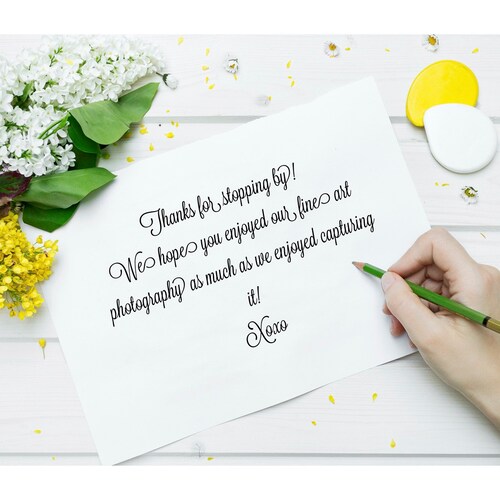 Thanks for stopping by!
We hope you enjoyed our fine art
photography as much as we enjoyed capturing
it!
Xoxo